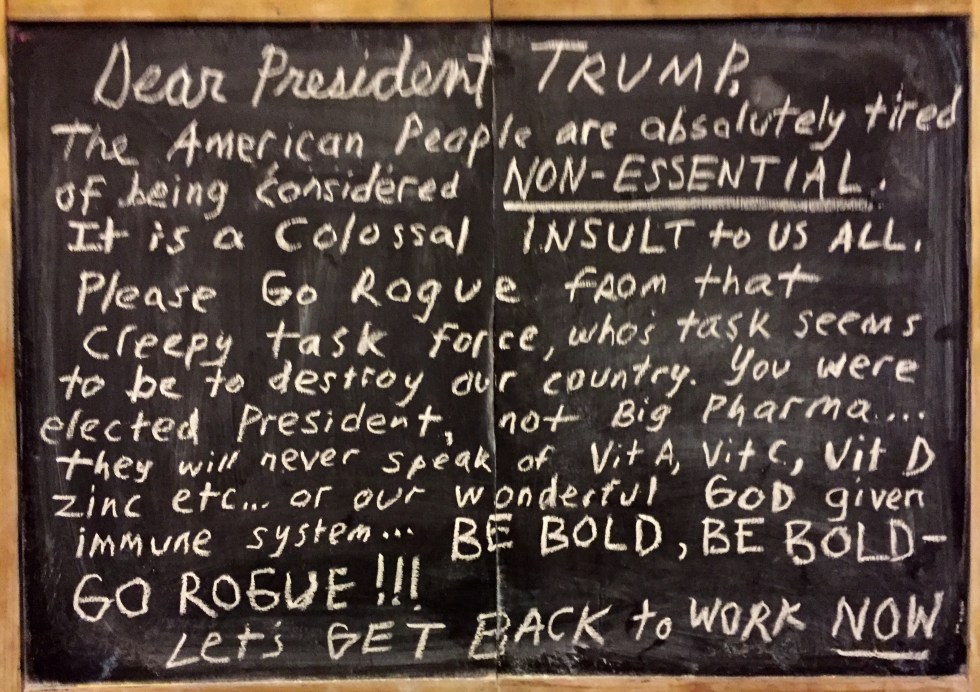 Dear President TRUMP,
The American People are absolutely tired
of being considered NON-ESSENTIAL.
It is a Colossal INSULT to US ALL.
Please Go Rogue from that
creepy task force, who's task seems
to be to destroy our country. You were
elected President, not Big Pharma....
they will never speak of Vit A, Vit C, Vit D
zinc etc... or our wonderful GOD given
immune system... BE BOLD, BE BOLD-
GO ROGUE!!!
Let's GET BACK to WORK NOW